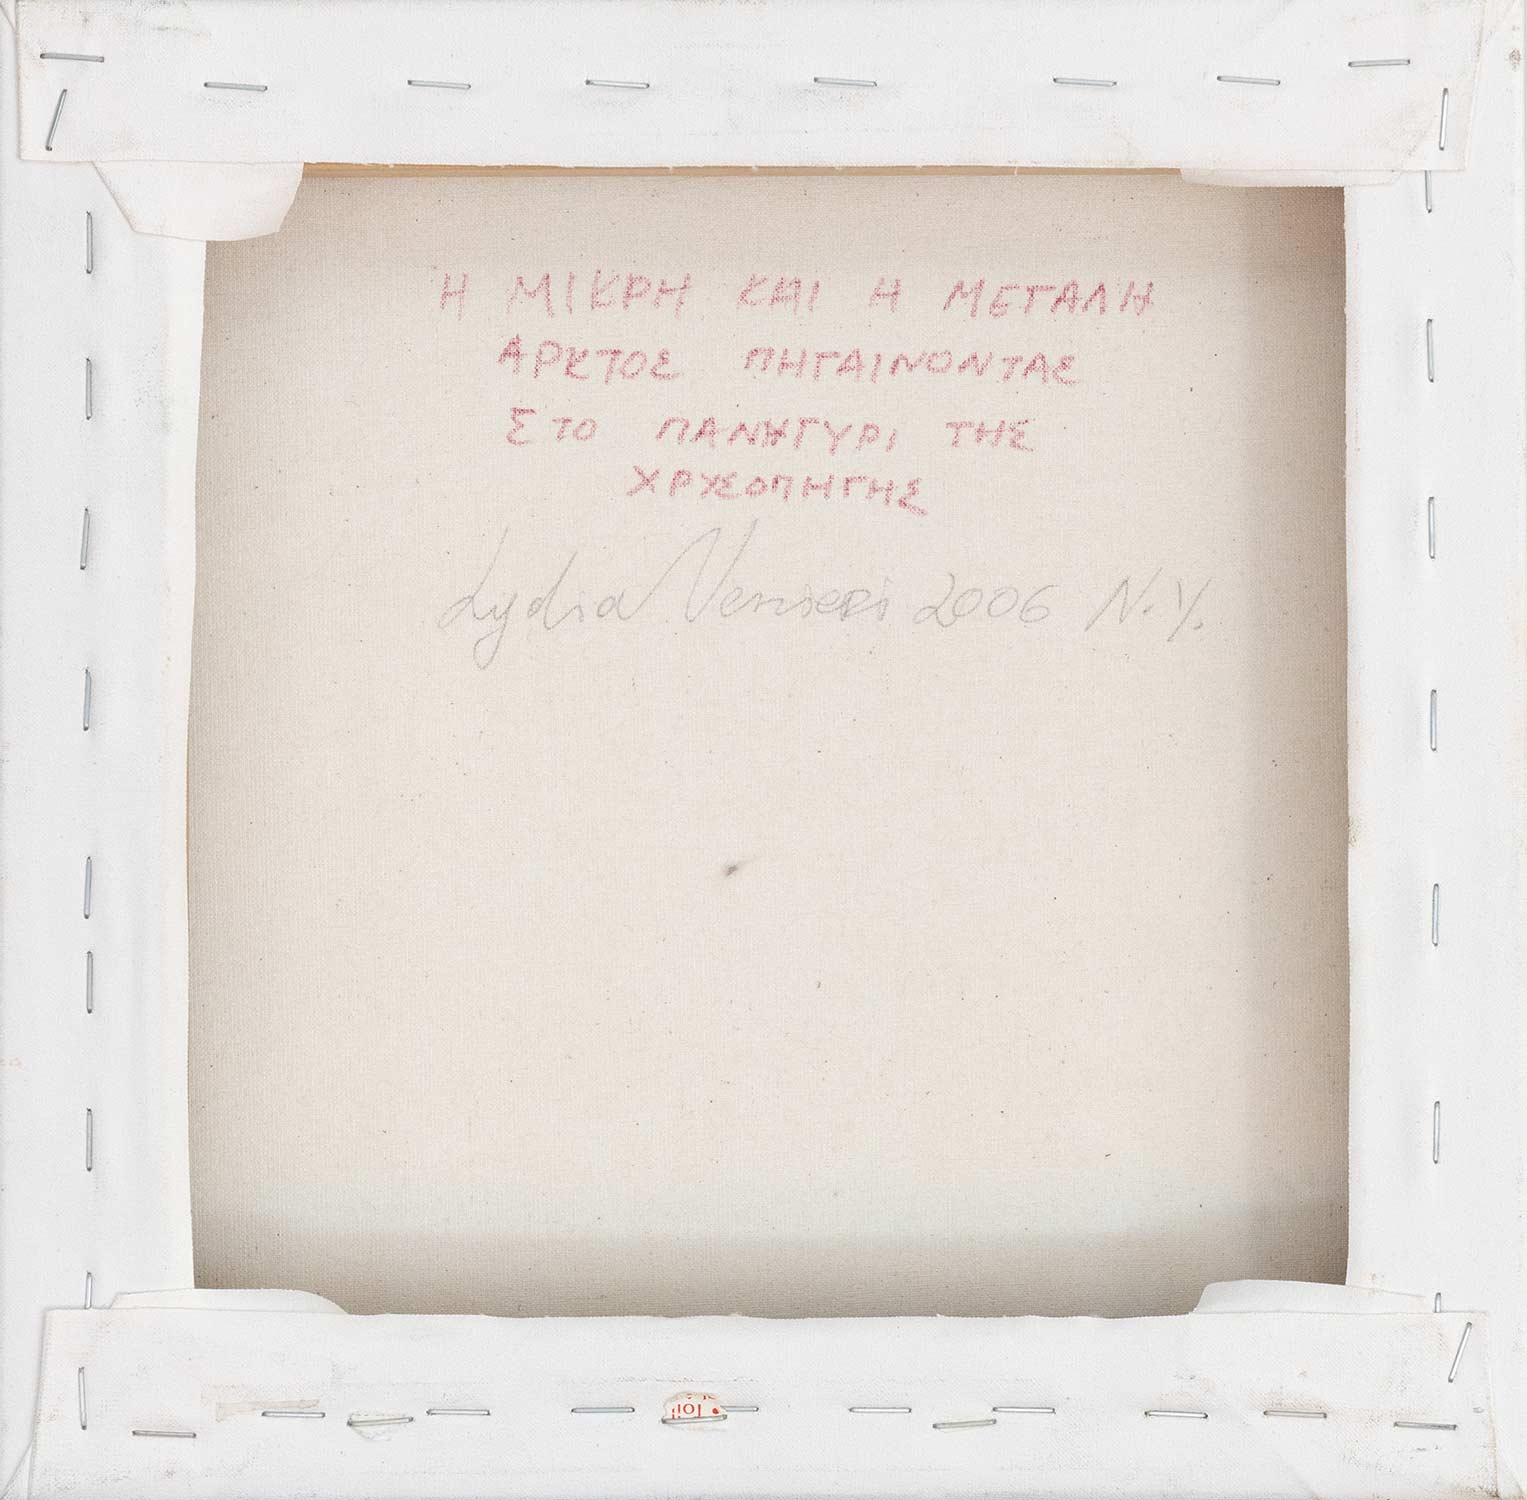 Η ΜΙΚΡΗ ΚΑΙ Η ΜΕΓΑΛΗ
ΑΡΚΤΟΣ ΠΗΓΑΙΝΟΝΤΑΣ
ΣΤΟ ΠΑΝΗΓΥΡΙ ΤΗΣ
ΧΡΥΣΟΠΗΓΗΣ
Lydia Venieri 2006 N.Y.